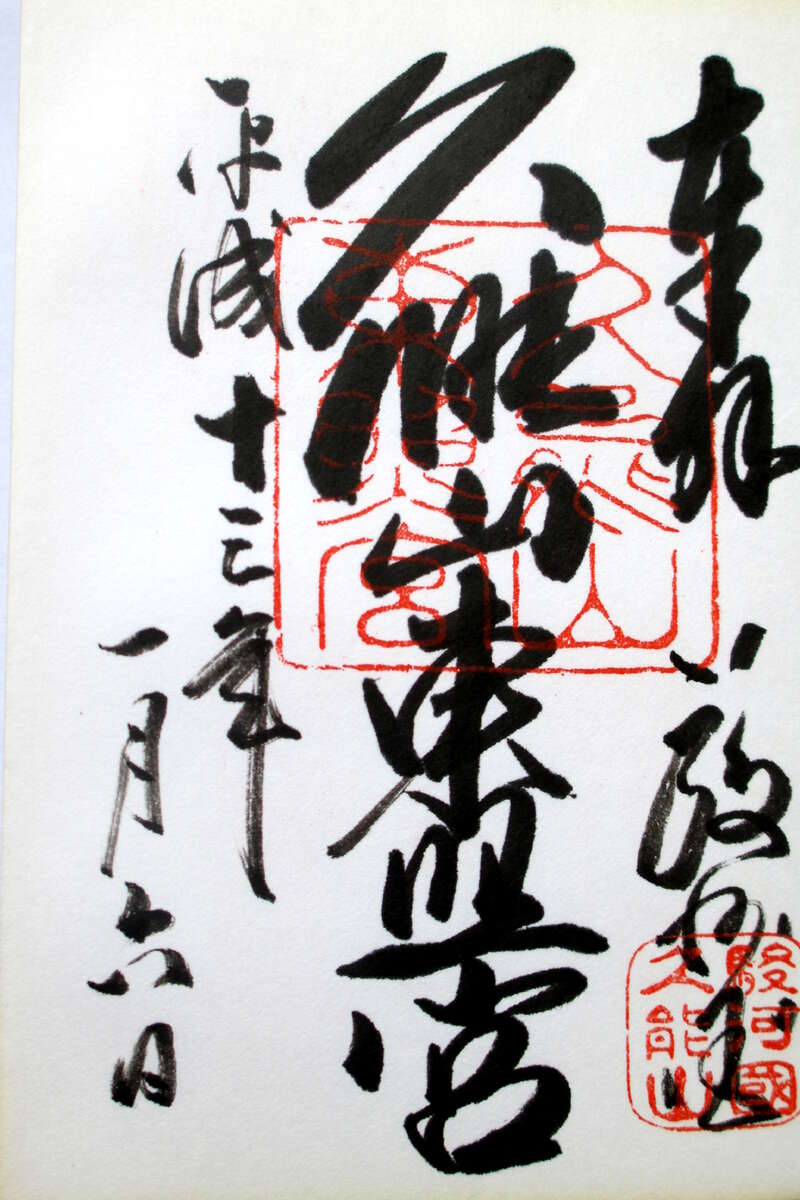 奉拝
駿州
久能山東照宮
平成十三年
一月六日
久能山
東照宮
駿河國
久能山